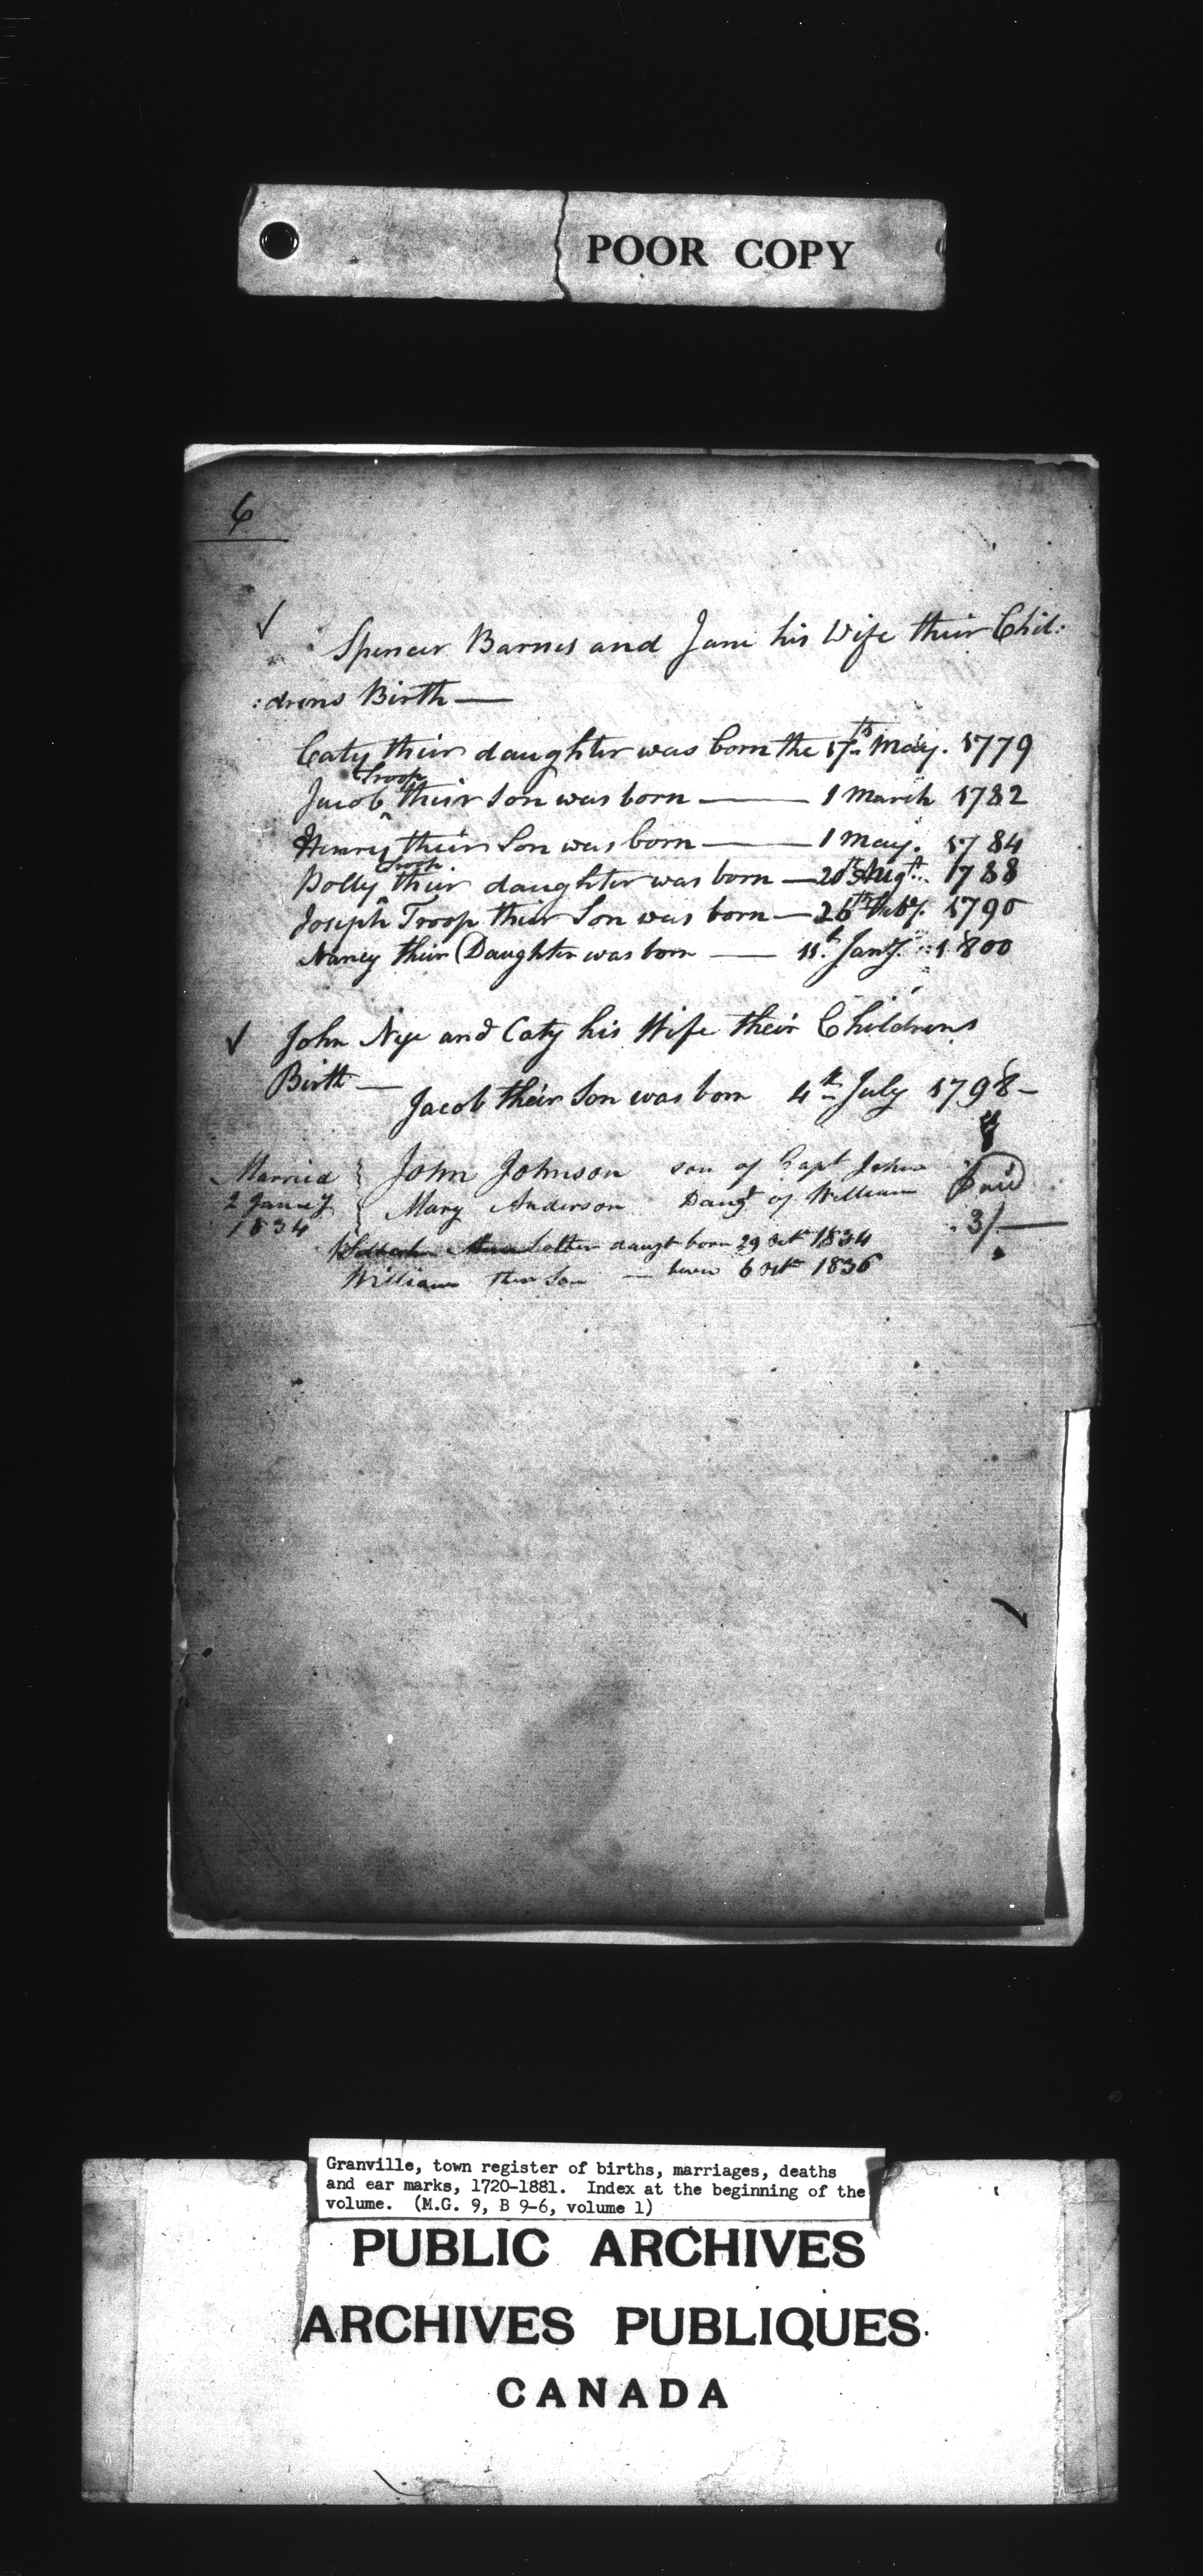 POOR COPY
6
Spencer Barnes and Jane his Wife their Chil:
:drens Birth —
Caty their daughter was born the 17th May. 1779
Troop
Jacob ^ their Son was born — 1 March 1782
Henry their Son was born — 1 May. 1784
Troop
Polly ^ their daughter was born — 20th Augt. 1788
Joseph Troop their Son was born — 26th Feby. 1790
Nancy their Daughter was born — 11t. Jany. 1800
John Nye and Caty his Wife their Childrens
Birth —
Jacob their Son was born 4th July 1798 —
Married } John Johnson son of Capt John
2 Janey } Mary Anderson Daugt of William Paid
1834 3/—
daugt born 29 Octr 1834
William their Son — born 6 Octr 1836
Granville, town register of births, marriages, deaths
and ear marks, 1720-1881. Index at the beginning of the
volume. (M.G. 9, B 9-6, volume 1)
PUBLIC ARCHIVES
ARCHIVES PUBLIQUES
CANADA